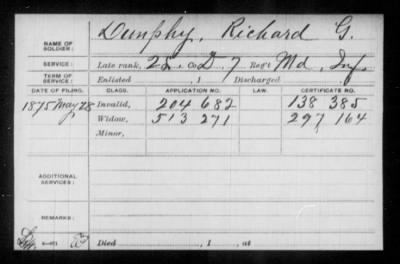 Dunphy, Richard G.
NAME OF SOLDIER:
SERVICE: Late rank, 2L. Co D, 7 Reg't Md. Inf.
TERM OF SERVICE: Enlisted , 1 Discharged
DATE OF FILING. CLASS. APPLICATION NO. LAW. CERTIFICATE NO.
1875 May 28 Invalid, 204 682 138 385
Widow, 513 271 297 164
Minor,
ADDITIONAL SERVICES:
REMARKS:
Died , 1 , at